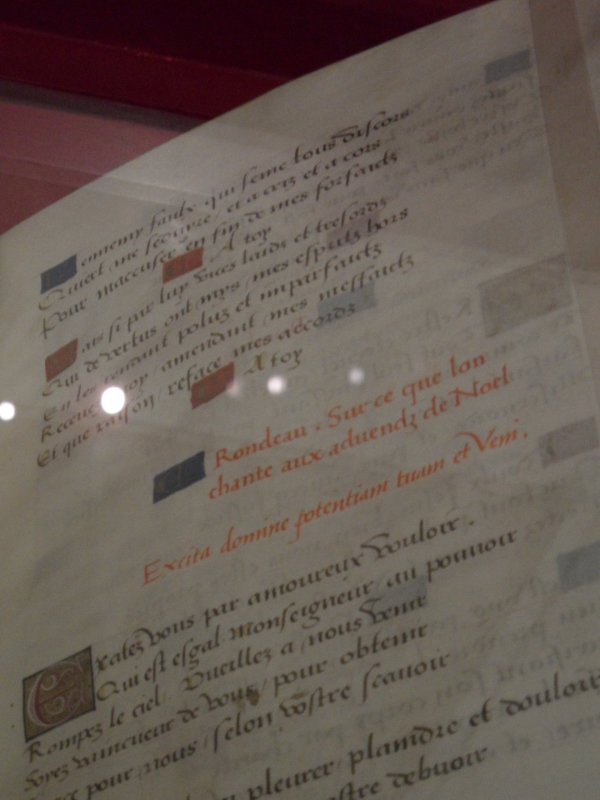 ennemy faulx qui seme tous discors
Qui veult me seduire / et a criz et a cors
Pour maccuser en fin de mes forfaictz
A toy
ais si par luy vices laidz et tresordz
Qui de vertus ont mys / mes espritz hors
En les rendant poluz et imparfaictz
Recoy / amendant / mes meffaictz
Et que raison / reface mes accordz
A toy
Rondeau . Sur ce que lon
chante aux aduendz de Noel
Excita domine potentiam tuam et Veni .
Excitez vous par amoureux vouloir .
Qui est esgal monseigneur / au pouuoir
Rompez le ciel . Vueillez a / nous venir
Soyez vaincueur de vous / pour obtenir
pour / nous / selon vostre scauoir
pleurer / plaindre et douloir
debuoir